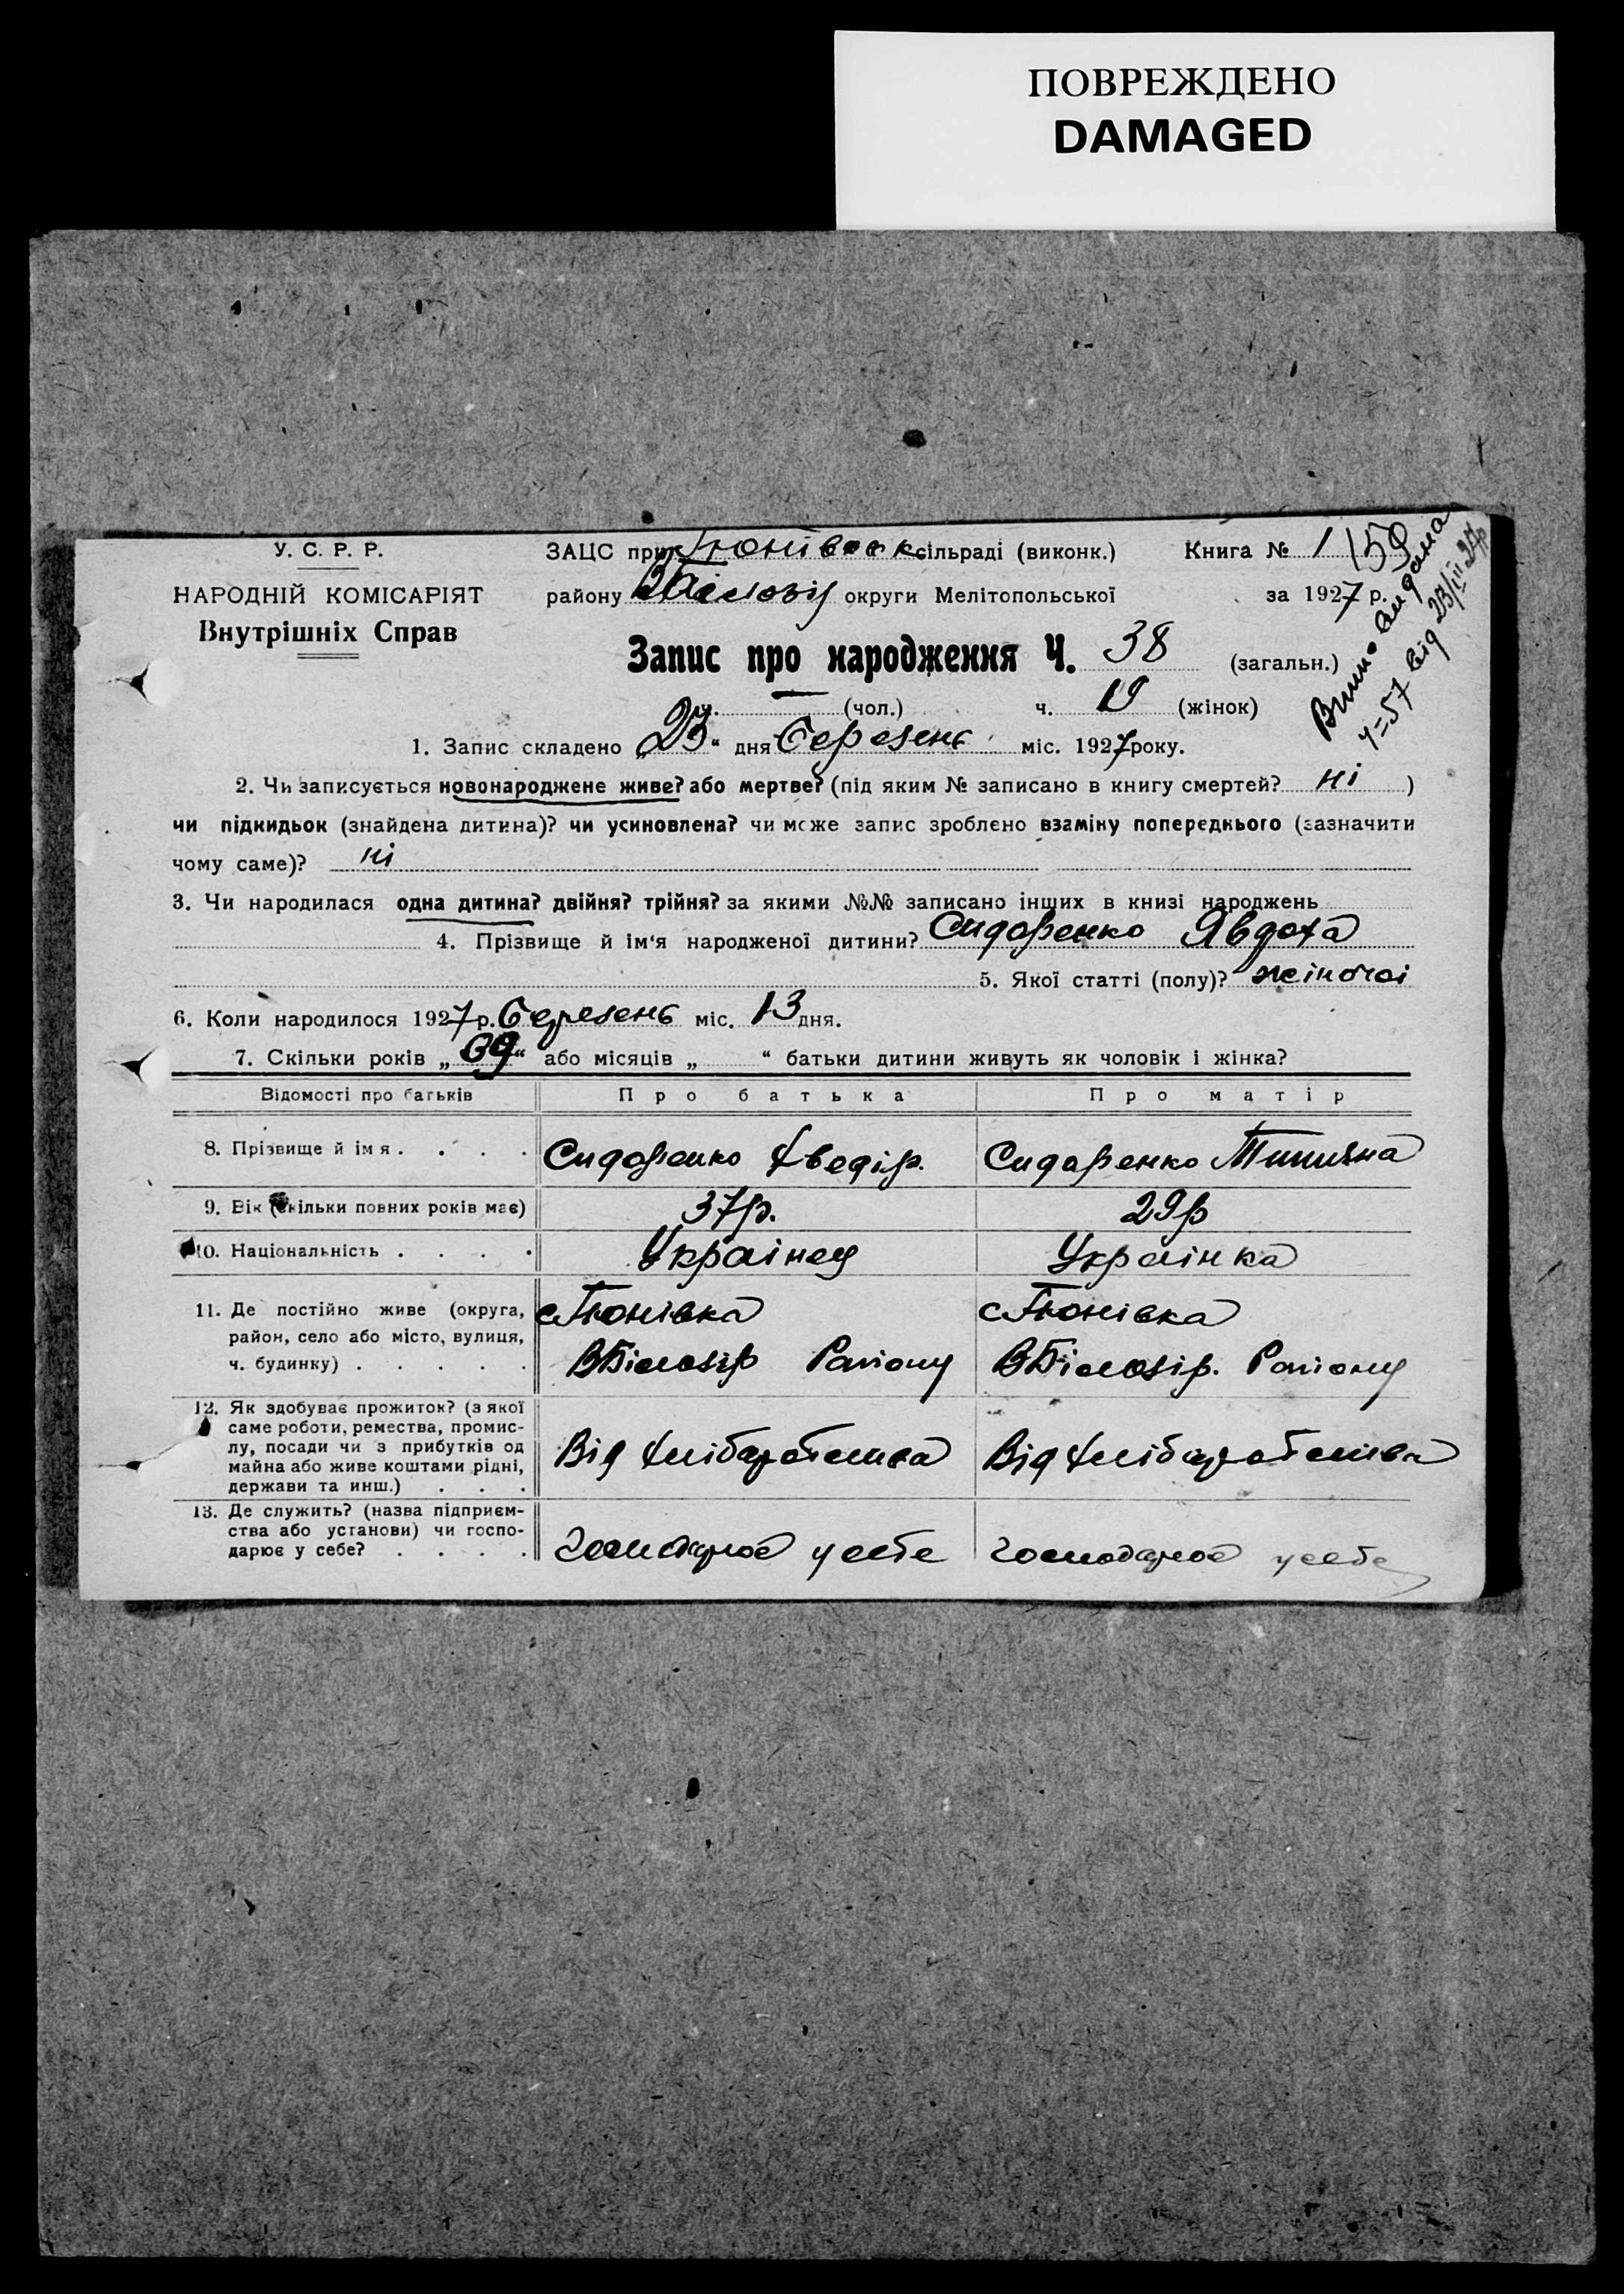 ПОВРЕЖДЕНО
DAMAGED
У. С. Р. Р.
НАРОДНІЙ КОМІСАРІЯТ
Внутрішніх Справ
ЗАЦС при Тюнівськ сільраді (виконк.) Книга № 1 /59
району ВБілозір округи Мелітопольської за 1927 р.
Запис про народження Ч. 38 (загальн.)
ч. — (чол.) ч. 19 (жінок)
Випис видана
ч=57 від 23/III 27р
1. Запис складено „23“ дня Березень міс. 1927 року.
2. Чи записується новонароджене живе? або мертве? (під яким № записано в книгу смертей? ні )
чи підкидьок (знайдена дитина)? чи усиновлена? чи може запис зроблено взаміну попереднього (зазначити
чому саме)? ні
3. Чи народилася одна дитина? двійня? трійня? за якими №№ записано інших в книзі народжень
4. Прізвище й ім‘я народженої дитини? Сидоренко Явдоха
5. Якої статті (полу)? жіночоі
6. Коли народилося 1927 р. Березень міс. 13 дня.
7. Скільки років „ “ або місяців „ “ батьки дитини живуть як чоловік і жінка?
Відомості про батьків Про батька Про матір
8. Прізвище й імя . . . . Сидоренко Хведір. Сидоренко
9. Вік (скільки повних років має) 37р. 29р
10. Національність . . . . Украінец Украінка
11. Де постійно живе (округа, район, село або місто, вулиця, ч. будинку) . . . . .
с Тюнівка
ВБілозір Району
с Тюнівка
ВБілозір. Району
12. Як здобуває прожиток? (з якої
саме роботи, ремества, промис-
лу, посади чи з прибутків од
майна або живе коштами рідні,
держави та инш.) . . .
Від хліборобства Від хліборобства
13. Де служить? (назва підприєм-
ства або установи) чи госпо-
дарює у себе? . . . .
господарює у себе господарює у себе